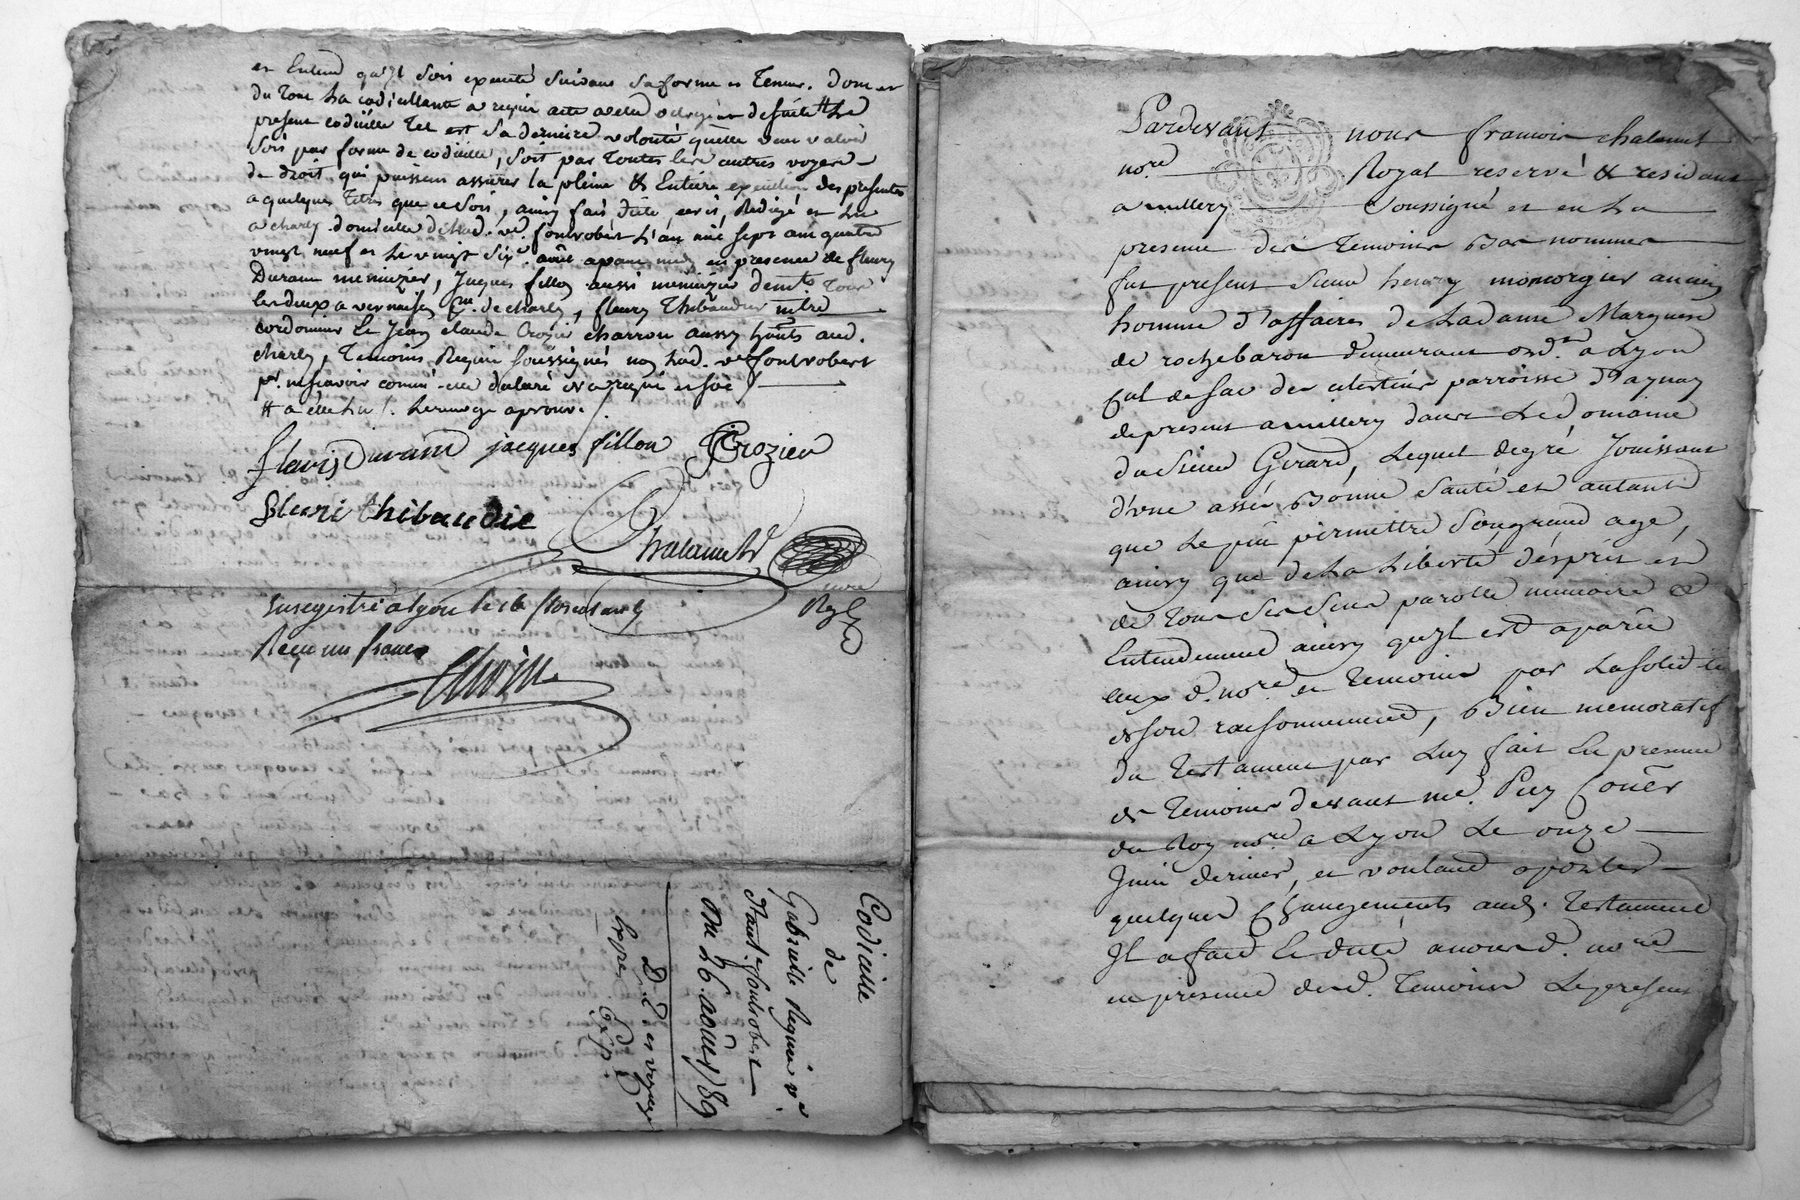 et Entend qu'Il soit executé suivant sa forme et Teneur. Dont et
du tout La codicillante a requis acte
present codicille Tel est sa derniere volonté quelle veut valoir
soit par forme de codicille, soit par Toutes les autres voyes
de droit qui puissent assurer la pleine & Entiere execution des presentes
a quelques Titres que ce soit, ainsy fait Dicté, ecrit, Redigé et Lu
a charly domicile de lad. ve. fontrobert L'an mil sept cent quatre
vingt neuf et le vingt six aout apres midy en presence de fleury
Durant menuizier, Jacques fillon aussi menuizier dem.ts Tous
les deux a vernaison de charly, fleury Thibaudier mtre
cordonnier Et Jean claude Crozier charron aussy hants aud.
charly, Temoins Requis soussignés non lad. ve fontrobert
pr. ne scavoir comme elle a declaré de ce requise
# a elle Lu /. Le renvoy aprouvé
fleuris Durant jacques fillon JCCrozier
fleuri thibaudie
Chalamel
Enregistré a lyon le 16 floreal an
Reçu un franc
Codicille
de
Gabrielle Requin ve.
fontrobert
Du 26 aout 1789
D. E. et voyage
Expn. Exp.
Pardevant nous francois chalamel
no.re Royal reservé & residant
a millery soussigné et en La
presence des Temoins Bas nommes
fut present sieur henry monorgier ancien
homme d'affaires de Madame Marquise
de rochebaron demeurant ord.nt a Lyon
Cul de sac des celestins parroisse d'aynay
de present a millery dans Le Domaine
du sieur Girard, Lequel de gré Jouissant
d'une assés Bonne santé et autant
que Le peut permettre son grand age,
ainsy que de La Liberté d'esprit et
de Tous ses sens parolle memoire &
Entendement ainsy qu'Il est aparû
aux d. no.re et Temoins par La solidité
de son raisonnement, Bien memoratif
du Testament par Luy fait En presence
de Temoins devant me. Pley Coner
du Roy no.re a Lyon Le onze
Juin dernier, et voulant aporter
quelques changements aud. Testament
Il a fait Et dicté a nous d. no.re
en presence desd. Temoins Le present